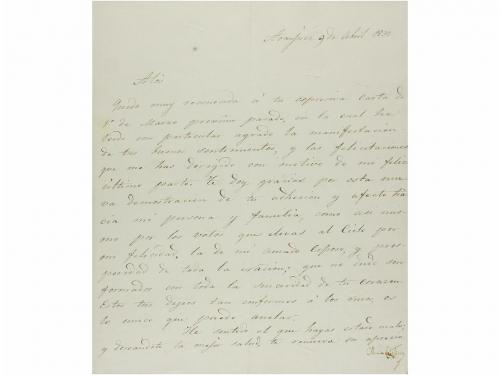 Aranjuez 9 de Abril 18
Quedo muy reconocida á tu expresiva carta de
8 de Marzo proximo pasado, en la cual he
visto con particular agrado la manifestacion
de tus buenos sentimentos, y las felicitaciones
que me has dirigido con motivo de mi feliz
último parto. Te doy gracias por esta nue
va demostracion de tu adhesion y afecto há
cia mi persona y familia, como asi mis
mo por los votos que elevas al Cielo por
mi felicidad, la de mi amado Esposo, y pros
peridad de toda la Nacion; que no dudo son
formados con toda la sinceridad de tu corazon.
Estos tus deseos tan conformes á los mios, es
lo unico que puedo anelar.
He sentido el que hayas estado malo;
y deseandote la mejor salud, te renueva su aprecio